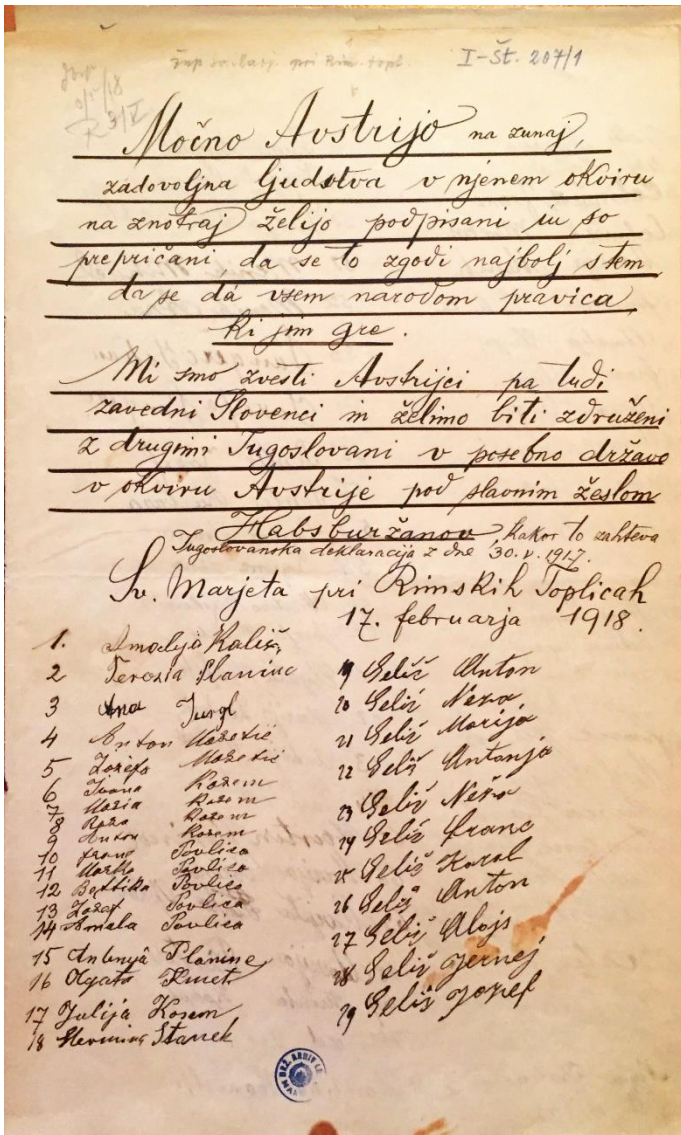 I-št. 207/1
Močno Avstrijo na zunaj,
zadovoljna ljudstva v njenem okviru
na znotraj želijo podpisani in so
prepričani, da se to zgodi najbolj s tem,
da se dá vsem narodom pravica,
ki jim gre.
Mi smo zvesti Avstrijci pa tudi
zavedni Slovenci in želimo biti združeni
z drugimi Jugoslovani v posebno državo
v okviru Avstrije pod slavnim žeslom
Habsburžanov, kakor to zahteva
Jugoslovanska deklaracija z dne 30. V. 1917.
Sv. Marjeta pri Rimskih Toplicah
17. februarja 1918.
1. Amalija Kališ
2 Terezia Planinc
3 Ana Jurgl
4 Anton
5 Jožefa
6 Ivana Kozem
7 Maria Kozem
8 Roza Kozem
9 Anton Kozem
10 Franc Povlica
11 Marka Povlica
12 Povlica
13 Jožef Povlica
14 Amala Povlica
15 Antonyâ Planinc
16 Agata Kmet
17 Julija Kosem
18 Stanek
19 Selič Anton
20 Selič Neža
21 Selič Marija
22 Selič Antonja
23 Selič Neža
24 Selič Franc
25 Selič Karol
26 Selič Anton
27 Selič Alojs
28 Selič Jernej
29 Selič Jožef